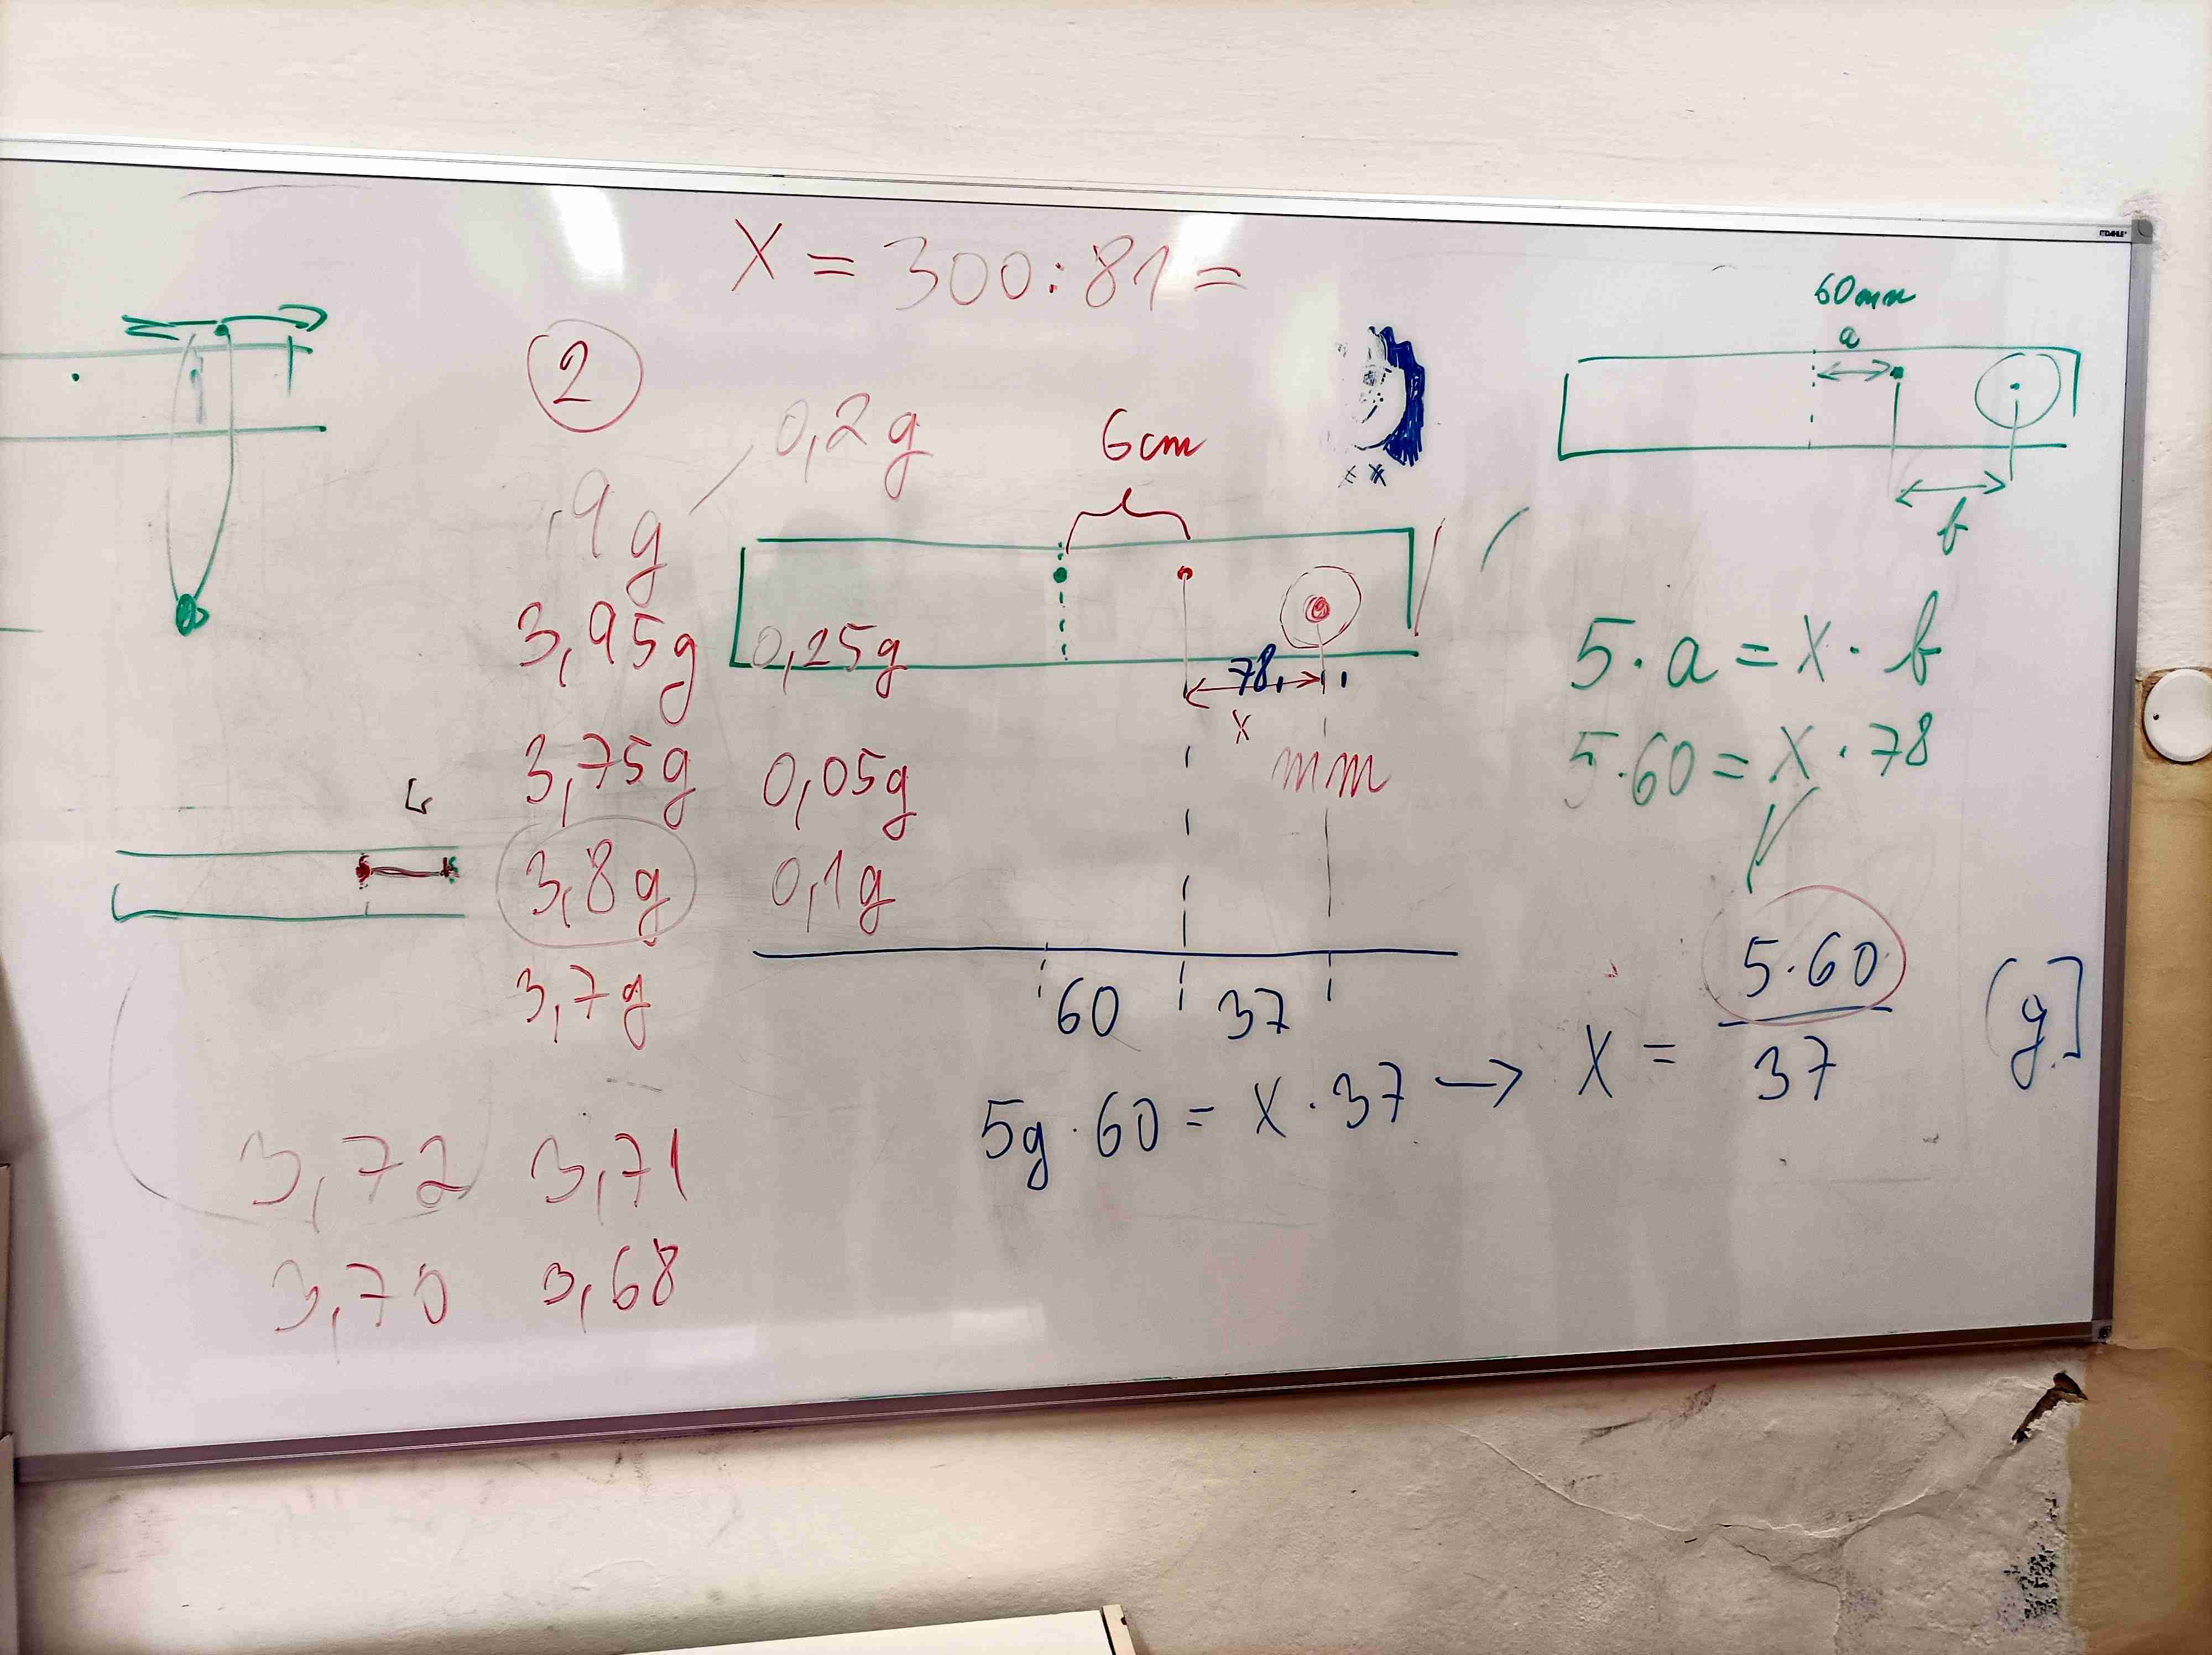 X = 300:81 =
DAHLE
60mm
a
b
5·a = X·b
5·60 = X·78
2
0,2g
,9g
3,95g 0,25g
3,75g 0,05g
3,8g 0,1g
3,7g
3,72 3,71
3,70 3,68
6cm
78
X
mm
60 37
5g·60 = X·37 → X = 5·60 / 37 [g]